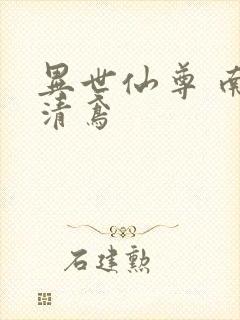 異世仙尊 南
清鳶
石建勲